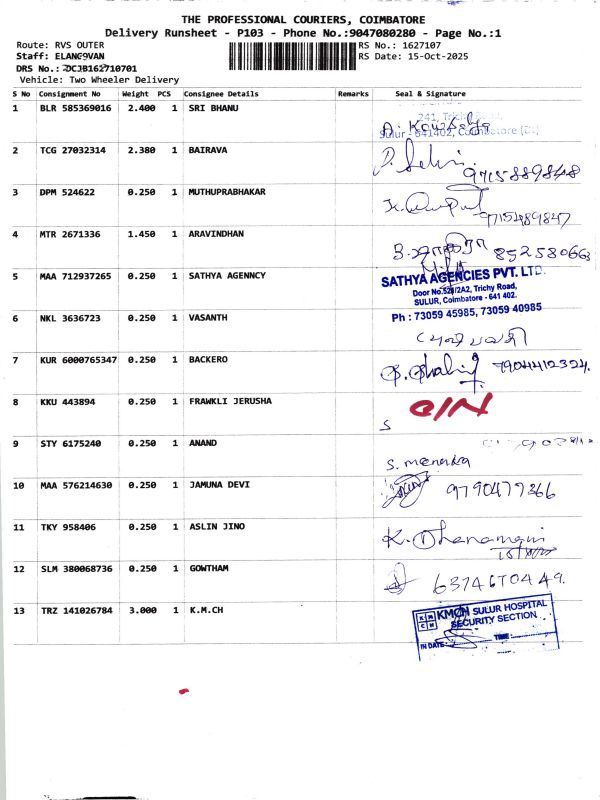 THE PROFESSIONAL COURIERS, COIMBATORE
Delivery Runsheet - P103 - Phone No.:9047080280 - Page No.:1
Route: RVS OUTER RS No.: 1627107
Staff: ELANGOVAN RS Date: 15-Oct-2025
DRS No.: DCJB162710701
Vehicle: Two Wheeler Delivery
S No Consignment No Weight PCS Consignee Details Remarks Seal & Signature
1 BLR 585369016 2.400 1 SRI BHANU
241, Trichy
Sulur - 641402, Coimbatore (Dt)
2 TCG 27032314 2.380 1 BAIRAVA
P. Selvi
9715889848
3 DPM 524622 0.250 1 MUTHUPRABHAKAR
9715489847
4 MTR 2671336 1.450 1 ARAVINDHAN
852580663
5 MAA 712937265 0.250 1 SATHYA AGENNCY
SATHYA AGENCIES PVT. LTD.
Trichy Road,
SULUR, Coimbatore - 641 402.
Ph : 73059 45985, 73059 40985
6 NKL 3636723 0.250 1 VASANTH
7 KUR 6000765347 0.250 1 BACKERO
7904412324.
8 KKU 443894 0.250 1 FRAWKLI JERUSHA
S
9 STY 6175240 0.250 1 ANAND
S. menaka
10 MAA 576214630 0.250 1 JAMUNA DEVI
9790479366
11 TKY 958406 0.250 1 ASLIN JINO
K. Dhanamani
12 SLM 380068736 0.250 1 GOWTHAM
6374670449.
13 TRZ 141026784 3.000 1 K.M.CH
KMCH SULUR HOSPITAL
SECURITY SECTION
IN DATE: TIME: